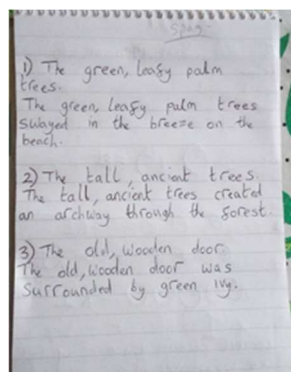 Spag
1) The green, leafy palm
trees.
The green, leafy palm trees
swayed in the breeze on the
beach.
2) The tall, ancient trees.
The tall, ancient trees created
an archway through the forest.
3) The old, wooden door
The old, wooden door was
surrounded by green ivy.